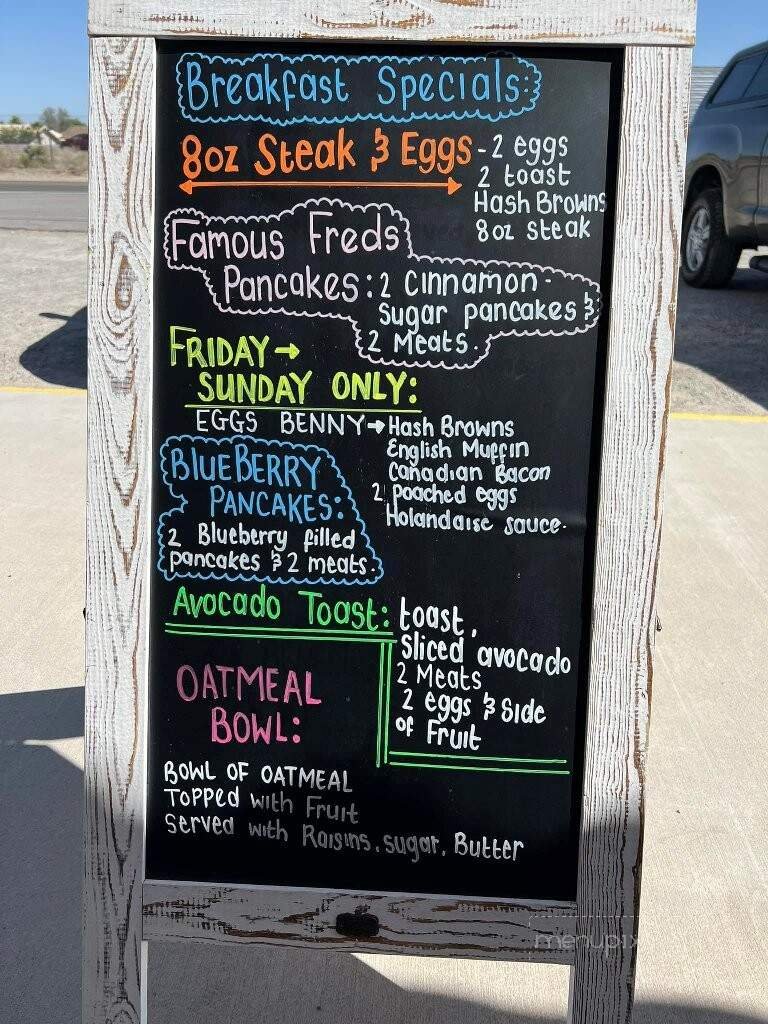 Breakfast Specials:
8oz Steak & Eggs - 2 eggs
2 toast
Hash Browns
8oz steak
Famous Freds
Pancakes: 2 cinnamon-
sugar pancakes &
2 Meats.
FRIDAY →
SUNDAY ONLY:
EGGS BENNY → Hash Browns
English Muffin
Canadian Bacon
2 poached eggs
Holandaise sauce.
BLUEBERRY
PANCAKES:
2 Blueberry filled
pancakes & 2 meats.
Avocado Toast: toast,
sliced avocado
2 Meats
2 eggs & side
of Fruit
OATMEAL
BOWL:
BOWL OF OATMEAL
Topped with Fruit
Served with Raisins, sugar, Butter
menupix